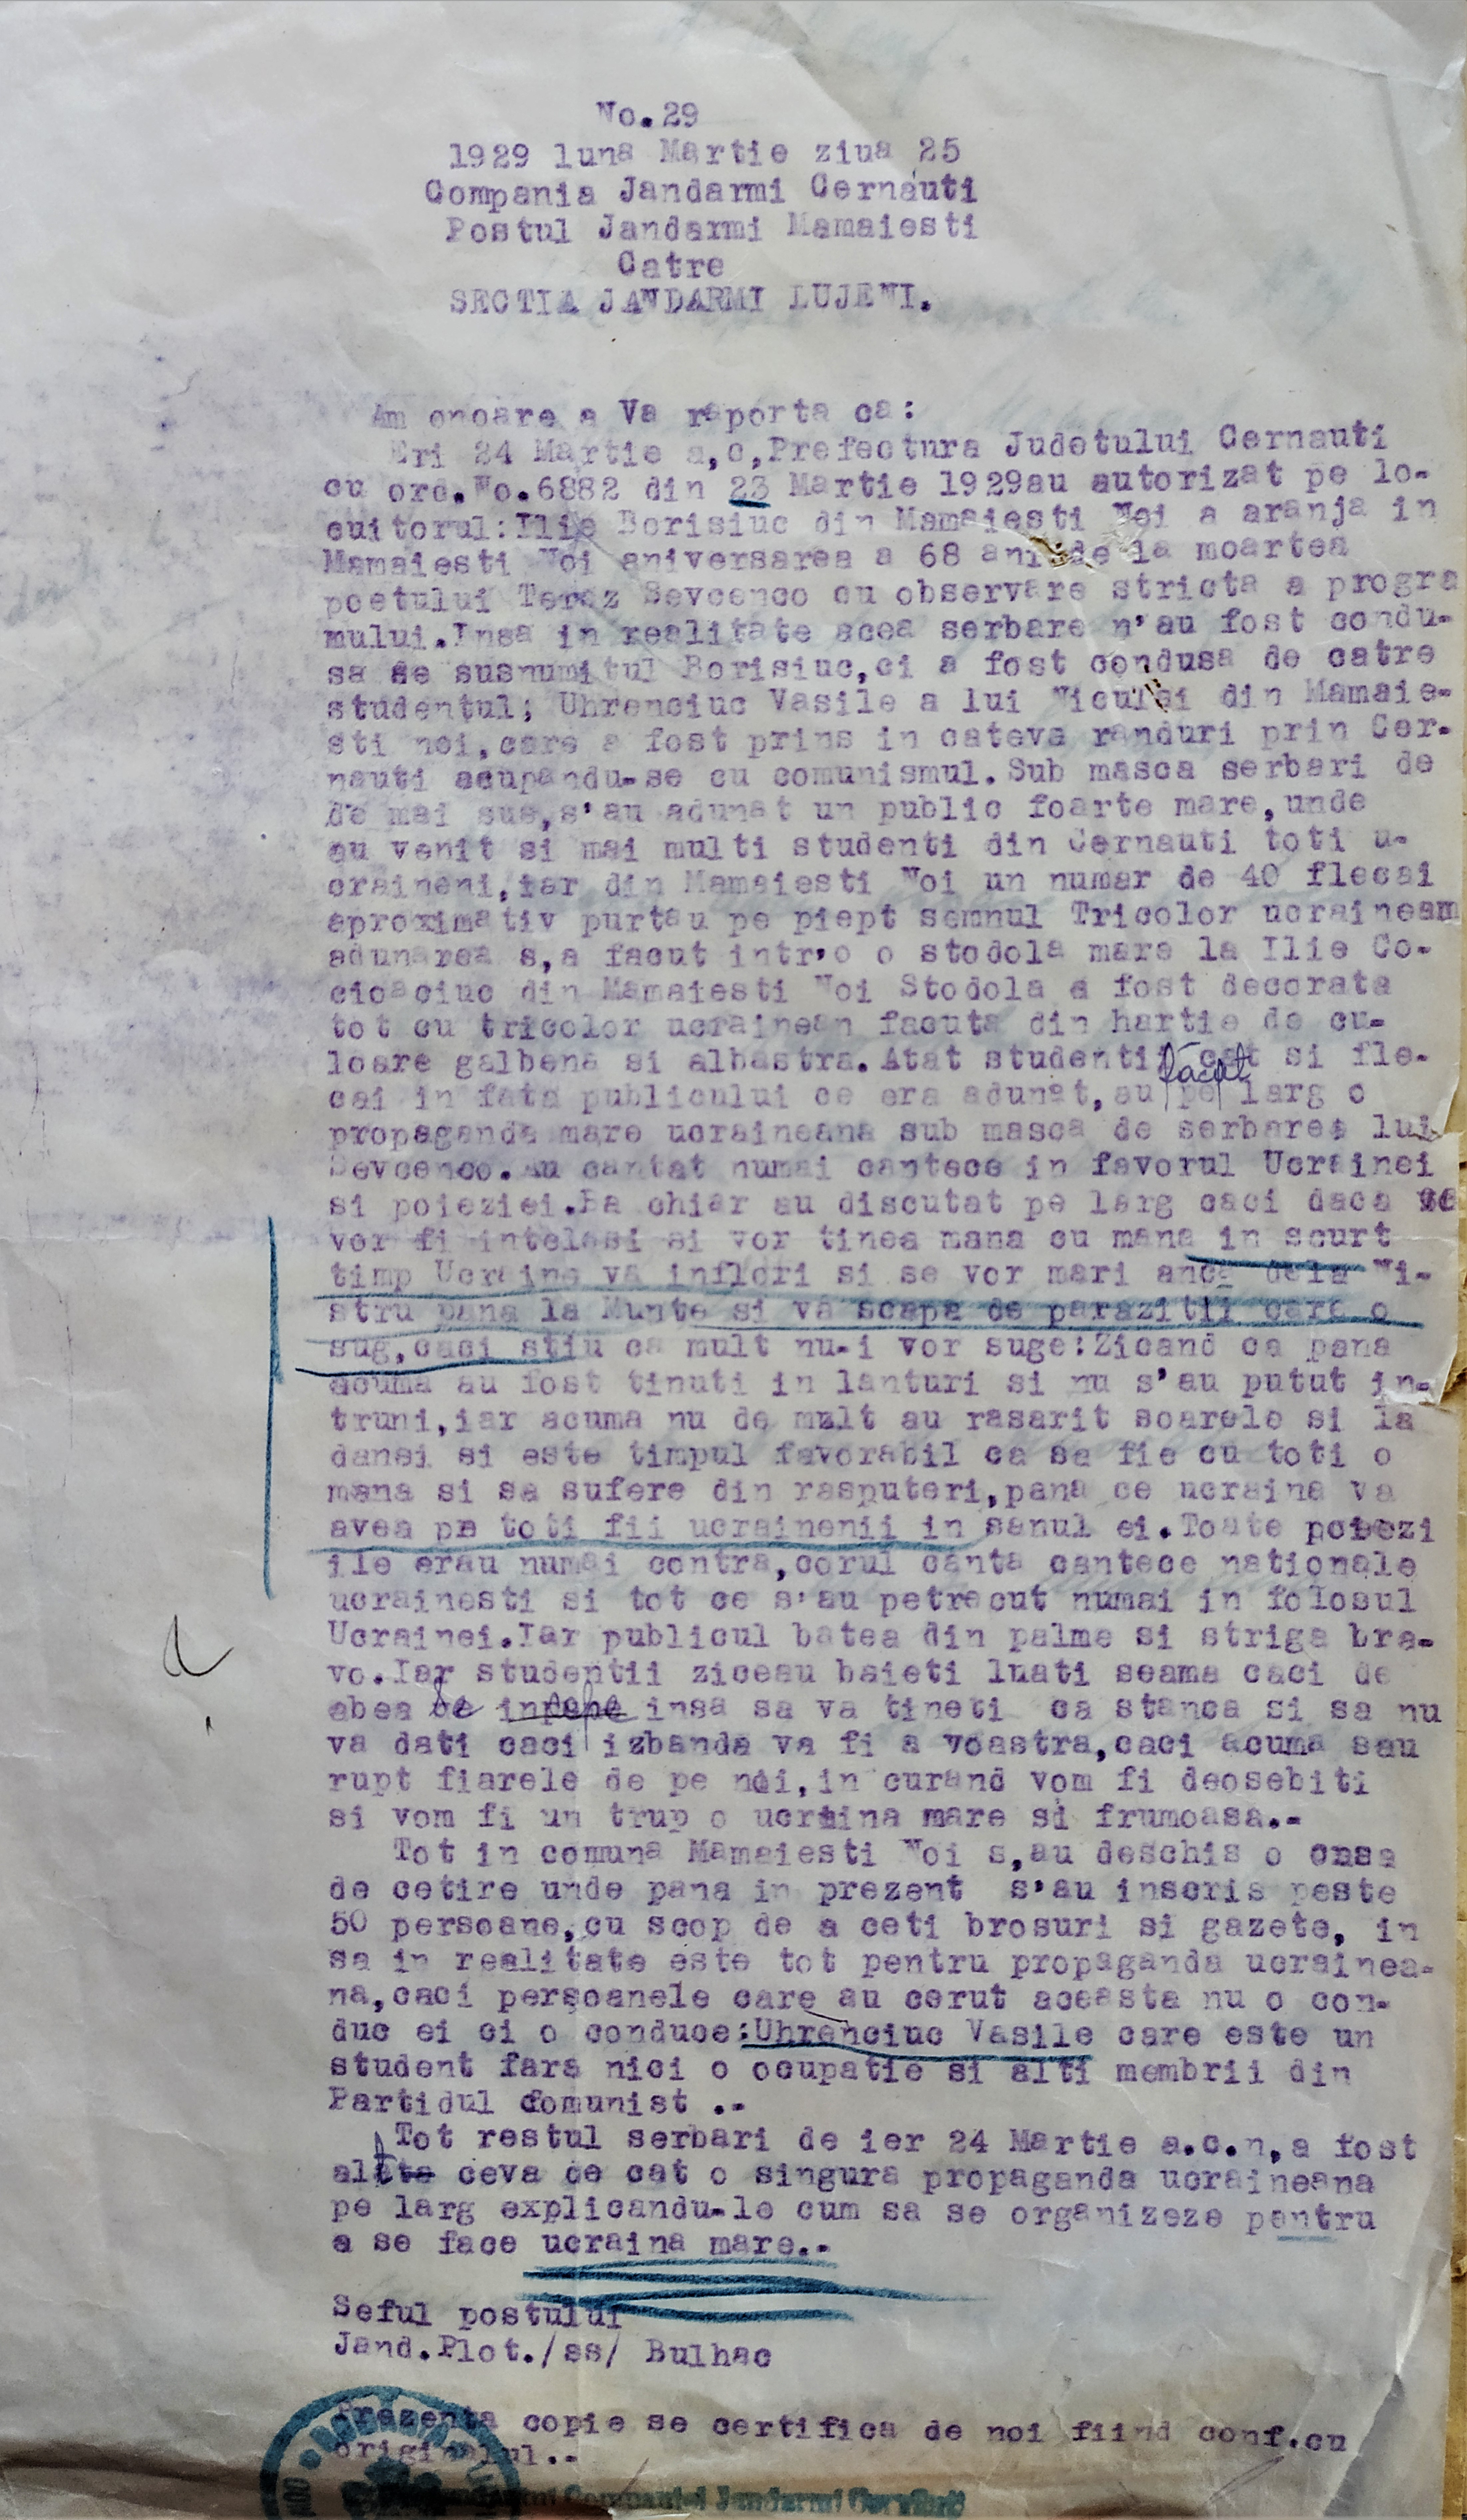 No.29
1929 luna Martie ziua 25
Compania Jandarmi Cernauti
Postul Jandarmi Mamaiesti
Catre
SECTIA JANDARMI LUJENI.
Am onoare a Va raporta ca:
Eri 24 Martie a,c,Prefectura Judetului Cernauti
cu ord.No.6882 din 23 Martie 1929au autorizat pe lo-
cuitorul:Ilie Borisiuc din Mamaiesti Noi a aranja in
Mamaiesti Noi aniversarea a 68 ani de la moartea
poetului Teraz Sevcenco cu observare stricta a progra
mului.Insa in realitate acea serbare n'au fost condu-
sa de susnumitul Borisiuc,ci a fost condusa de catre
studentul; Uhrenciuc Vasile a lui Niculai din Mamaie-
sti noi,care a fost prins in cateva randuri prin Cer-
nauti acupandu-se cu comunismul.Sub masca serbari de
de mai sus,s'au adunat un public foarte mare,unde
au venit si mai multi studenti din Cernauti toti u-
craineni,iar din Mamaiesti Noi un numar de 40 flecai
aproximativ purtau pe piept semnul Tricolor ucrainean
adunarea s,a facut intr'o o stodola mare la Ilie Co-
cicaciuc din Mamaiesti Noi Stodola a fost decorata
tot cu tricolor ucrainean facuta din hartie de cu-
loare galbena si albastra.Atat studentii cat si fle-
cai in fata publicului ce era adunat,au făcut pe larg o
propaganda mare ucraineana sub masca de serbarea lui
Sevcenco.Au cantat numai cantece in favorul Ucrainei
si poieziei.Ba chiar au discutat pe larg caci daca se
vor fi intelesi si vor tinea mana cu mana in scurt
timp Ucraina va inflori si se vor mari anca dela Ni-
stru pana la Munte si va scapa de parazitii care o
sug,caci stiu ca mult nu-i vor suge:Zicand ca pana
acuma au fost tinuti in lanturi si nu s'au putut in-
truni,iar acuma nu de mult au rasarit soarele si la
dansi si este timpul favorabil ca sa fie cu toti o
mana si sa sufere din rasputeri,pana ce ucraina va
avea pe toti fii ucrainenii in sanul ei.Toate poiezi
ile erau numai contra,corul canta cantece nationale
ucrainesti si tot ce s'au petrecut numai in folosul
Ucrainei.Iar publicul batea din palme si striga bra-
vo.Iar studentii ziceau baieti luati seama caci de
abea se incepe insa sa va tineti ca stanca si sa nu
va dati caci izbanda va fi a voastra,caci acuma sau
rupt fiarele de pe noi,in curand vom fi deosebiti
si vom fi un trup o ucraina mare si frumoasa.-
Tot in comuna Mamaiesti Noi s,au deschis o casa
de cetire unde pana in prezent s'au inscris peste
50 persoane,cu scop de a ceti brosuri si gazete, in
sa in realitate este tot pentru propaganda ucrainea-
na,caci persoanele care au cerut aceasta nu o con-
duc ei ci o conduce:Uhrenciuc Vasile care este un
student fara nici o ocupatie si alti membrii din
Partidul Comunist .-
Tot restul serbari de ier 24 Martie a.c.n,a fost
alt ceva de cat o singura propaganda ucraineana
pe larg explicandu-le cum sa se organizeze pentru
a se face ucraina mare.-
Seful postului
Jand.Plot./ss/ Bulhac
Prezenta copie se certifica de noi fiind conf.cu
originalul.-
Companiei Jandarmi